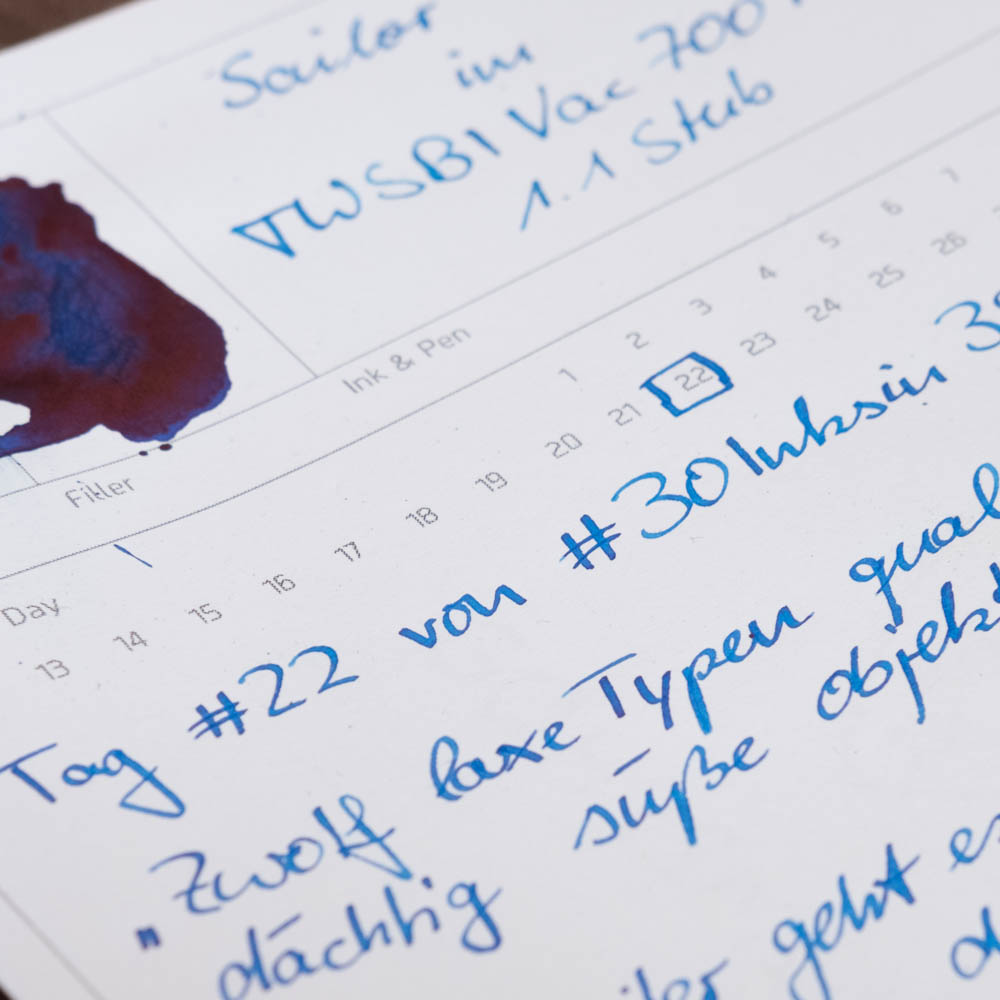 Sailor
im
TWSBI Vac 700
1.1 Stub
Ink & Pen
Filler
1 2 3 4 5 6 7
Day
13 14 15 16 17 18 19 20 21 22 23 24 25 26
Tag #22 von #30Inksin
"Zwölf laxe Typen
dächtig süße objekt
geht